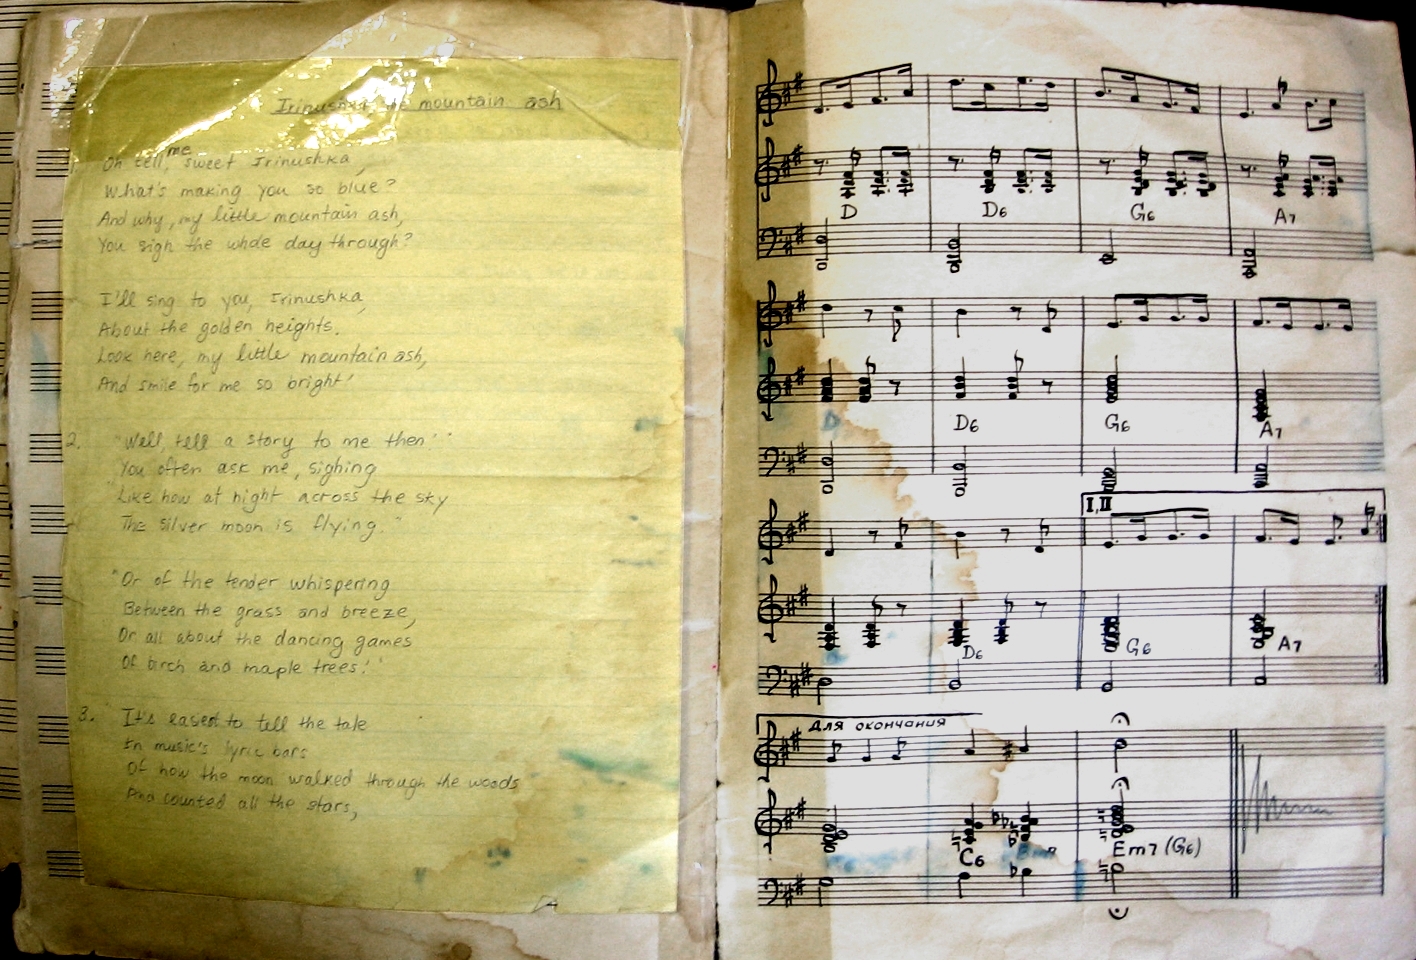 Irinushka the mountain ash
Oh tell me, sweet Irinushka,
What's making you so blue?
And why, my little mountain ash,
You sigh the whole day through?
I'll sing to you, Irinushka,
About the golden heights.
Look here, my little mountain ash,
And smile for me so bright!
2. "Well, tell a story to me then!"
You often ask me, sighing
"Like how at night across the sky
The silver moon is flying."
"Or of the tender whispering
Between the grass and breeze,
Or all about the dancing games
Of birch and maple trees!"
3. It's easiest to tell the tale
In music's lyric bars
Of how the moon walked through the woods
And counted all the stars,
D D6 G6 A7
D D6 G6 A7
I, II
D6 G6 A7
для окончания
C6 Em7 (G6)